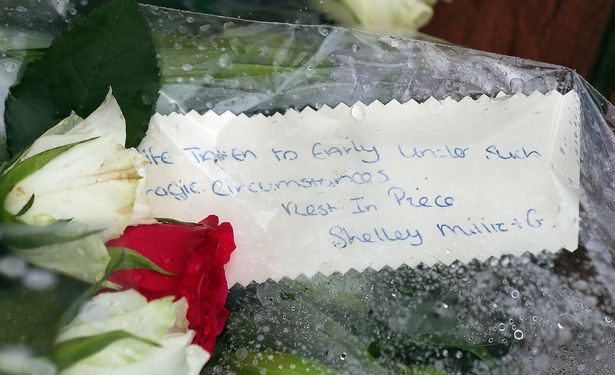 ife Taken to Early under such
ragic Circumstances
Rest In Piece
Shelley Millie + G